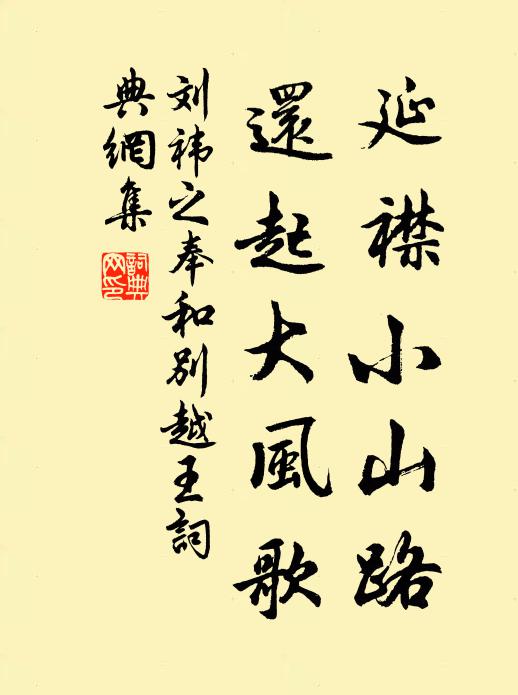 延襟小山路
還起大風歌
刘祎之奉和别越王詞
典網集
詞典
网印